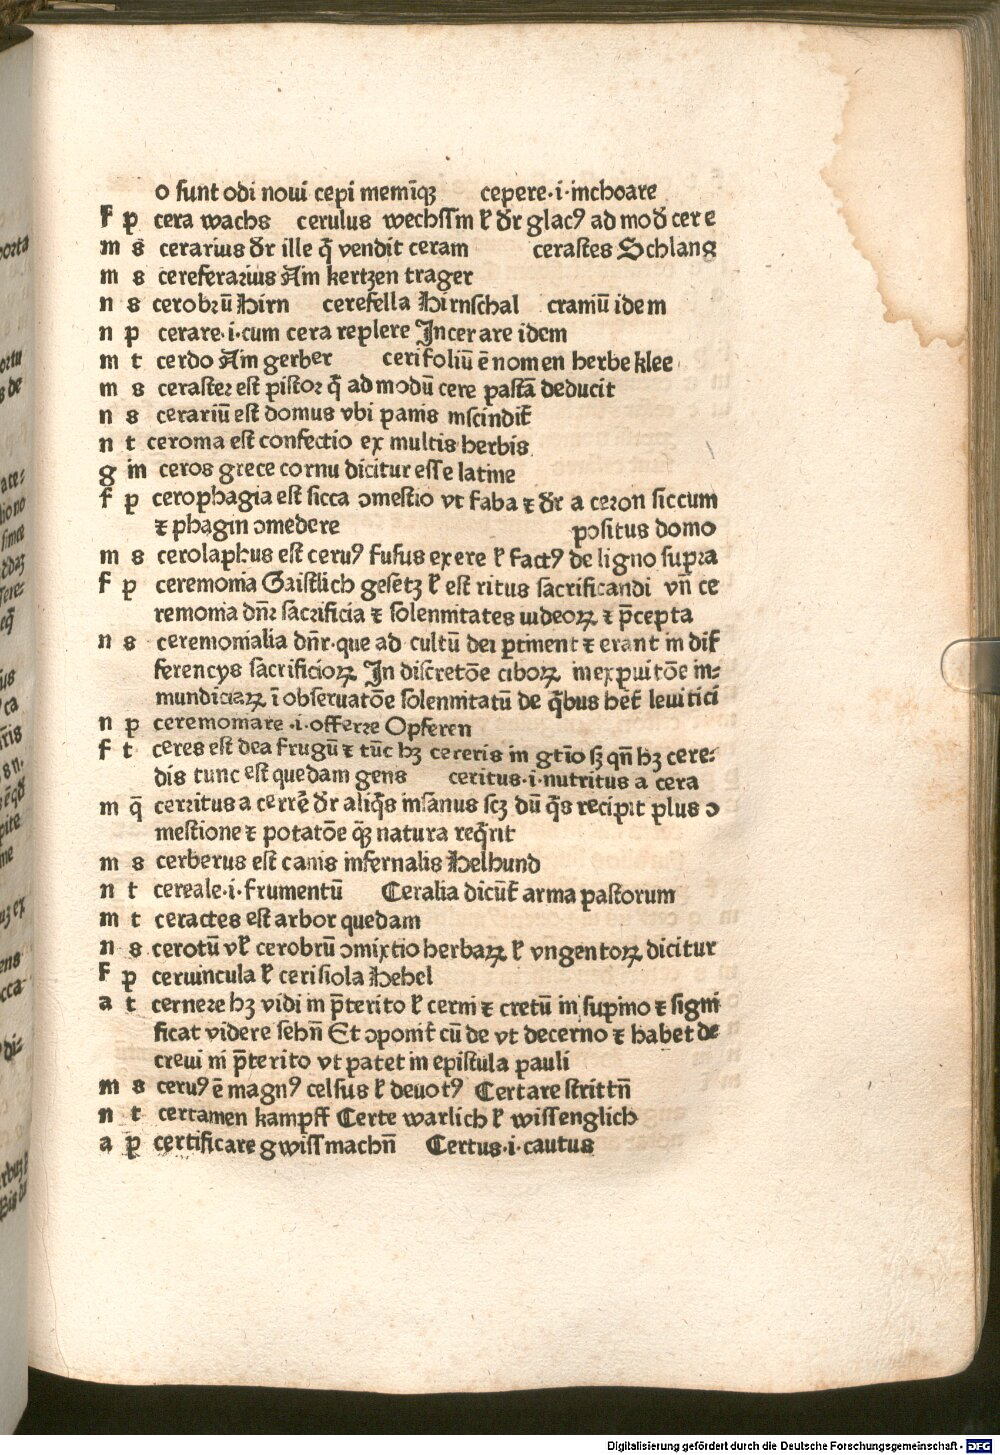 o sunt odi noui cepi memiqꝫ cepere·i·inchoare
F p cera wachs cerulus wechssin ł dr̄ glacꝰ ad mod̄ cere
m s cerarius dr̄ ille q̄ vendit ceram cerastes Schlang
m s cereferarius Ain kertzen trager
n s cerobrū Hirn cerefella Hirnschal craniū idem
n p cerare·i·cum cera replere Incerare idem
m t cerdo Ain gerber cerifoliū ē nomen herbe klee
m s ceraster est pistor q̄ ad modū cere pastā deducit
n s cerariū est domus vbi panis inscindit̄
n t ceroma est confectio ex multis herbis
g in ceros grece cornu dicitur esse latine
f p cerophagia est sicca ɔmestio vt faba ⁊ dr̄ a ceron siccum
⁊ phagin ɔmedere positus domo
m s cerolaphus est ceruꝰ fusus ex ere ł factꝰ de ligno supra
f p ceremonia Gaistlich gesetz ł est ritus sacrificandi vn̄ ce
remonia dn̄r sacrificia ⁊ solennitates iudeoꝝ ⁊ p̄cepta
n s ceremonialia dn̄r·que ad cultū dei ꝑtinent ⁊ erant in dif
ferencijs sacrificioꝝ In discretōe ciboꝝ in expuitōe in⸗
mundiciaꝝ ī obseruatōe solennitatū de q̄bus het̄ leuitici
n p ceremoniare ·i·offerre Opferen
f t ceres est dea frugū ⁊ tūc hꝫ cereris in gtīo sꝫ qn̄ hꝫ cere⸗
dis tunc est quedam gens ceritus·i·nutritus a cera
m q̄ cerritus a cerrē dr̄ aliq̄s insanus scꝫ dū q̄s recipit plus ɔ
mestione ⁊ potatōe q̄ꝫ natura req̄rit
m s cerberus est canis infernalis Helhund
n t cereale·i·frumentū Ceralia dicūt̄ arma pastorum
m t ceractes est arbor quedam
n s cerotū vł cerobrū ɔmixtio herbaꝝ ł vngentoꝝ dicitur
F p ceruincula ł cerisiola Hebel
a t cernere hꝫ vidi in p̄terito ł cerni ⁊ cretū in supino ⁊ signi
ficat videre sehn̄ Et ɔponit̄ cū de vt decerno ⁊ habet de
creui in p̄terito vt patet in epistula pauli
m s ceruꝰ ē magnꝰ celsus ł deuotꝰ Certare strittn̄
n t certamen kampff Certe warlich ł wissenglich
a p certificare gwiss machn̄ Certus·i·cautus
Digitalisierung gefördert durch die Deutsche Forschungsgemeinschaft - DFG